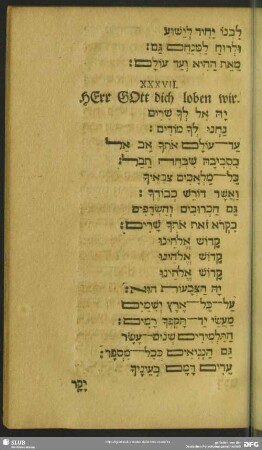 לבנו יחיד לישוע
ולרוח למנחם גם:
מאת ההוא ועד עולם:
XXXVII.
HErr GOtt dich loben wir.
יה אל לך שרים
נחנו לך מודים:
עד־עולם אתך אב אל
בסביבה שבחה חבל:
כל־מלאכים צבאיך
ואשר דורש כבודך:
גם הכרובים והשרפים
בקרא זאת אתך שרים:
קדוש אלהינו
קדוש אלהינו
קדוש אלהינו
יה הצבעות הוא:
על־כל־ארץ ושמים
מעשי יד־תקפך רמים:
התלמידים שנים־עשר
גם הנביאים ככל־מספר:
ערים דמם בעיניך
יקר
SLUB
DFG